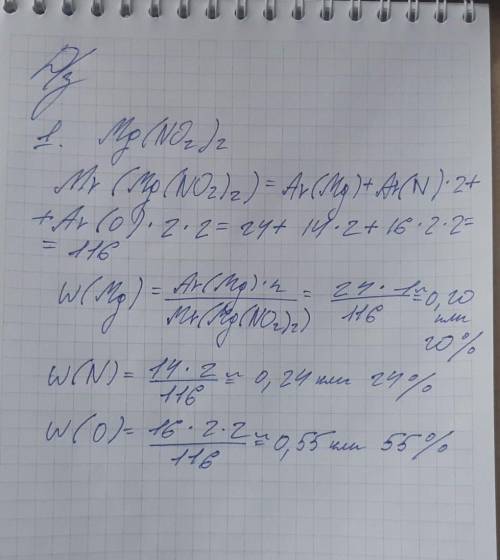 Д/з
1. Mg(NO₂)₂
Mr (Mg(NO₂)₂) = Ar(Mg) + Ar(N)·2+
+ Ar(O)·2·2 = 24 + 14·2 + 16·2·2=
= 116
W(Mg) = Ar(Mg)·n / Mr(Mg(NO₂)₂) = 24·1 / 116 ≈ 0,20
или
20%
W(N) = 14·2 / 116 ≈ 0,24 или 24%
W(O) = 16·2·2 / 116 ≈ 0,55 или 55%